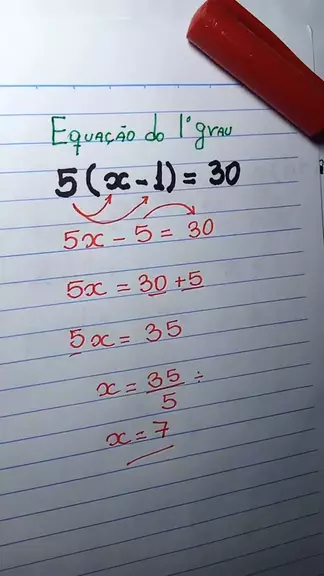 Equação do 1º grau
5(x-1)=30
5x-5=30
5x=30+5
5x=35
x=35/5 ÷
x=7